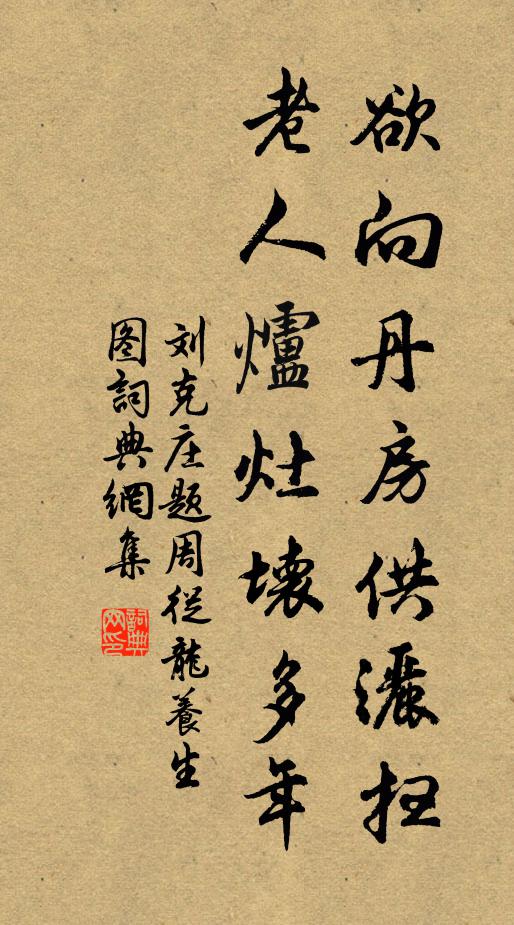 欲向丹房供灑扫
老人爐灶壞多年
刘克庄题周從龍養生
图詞典網集
詞典网印